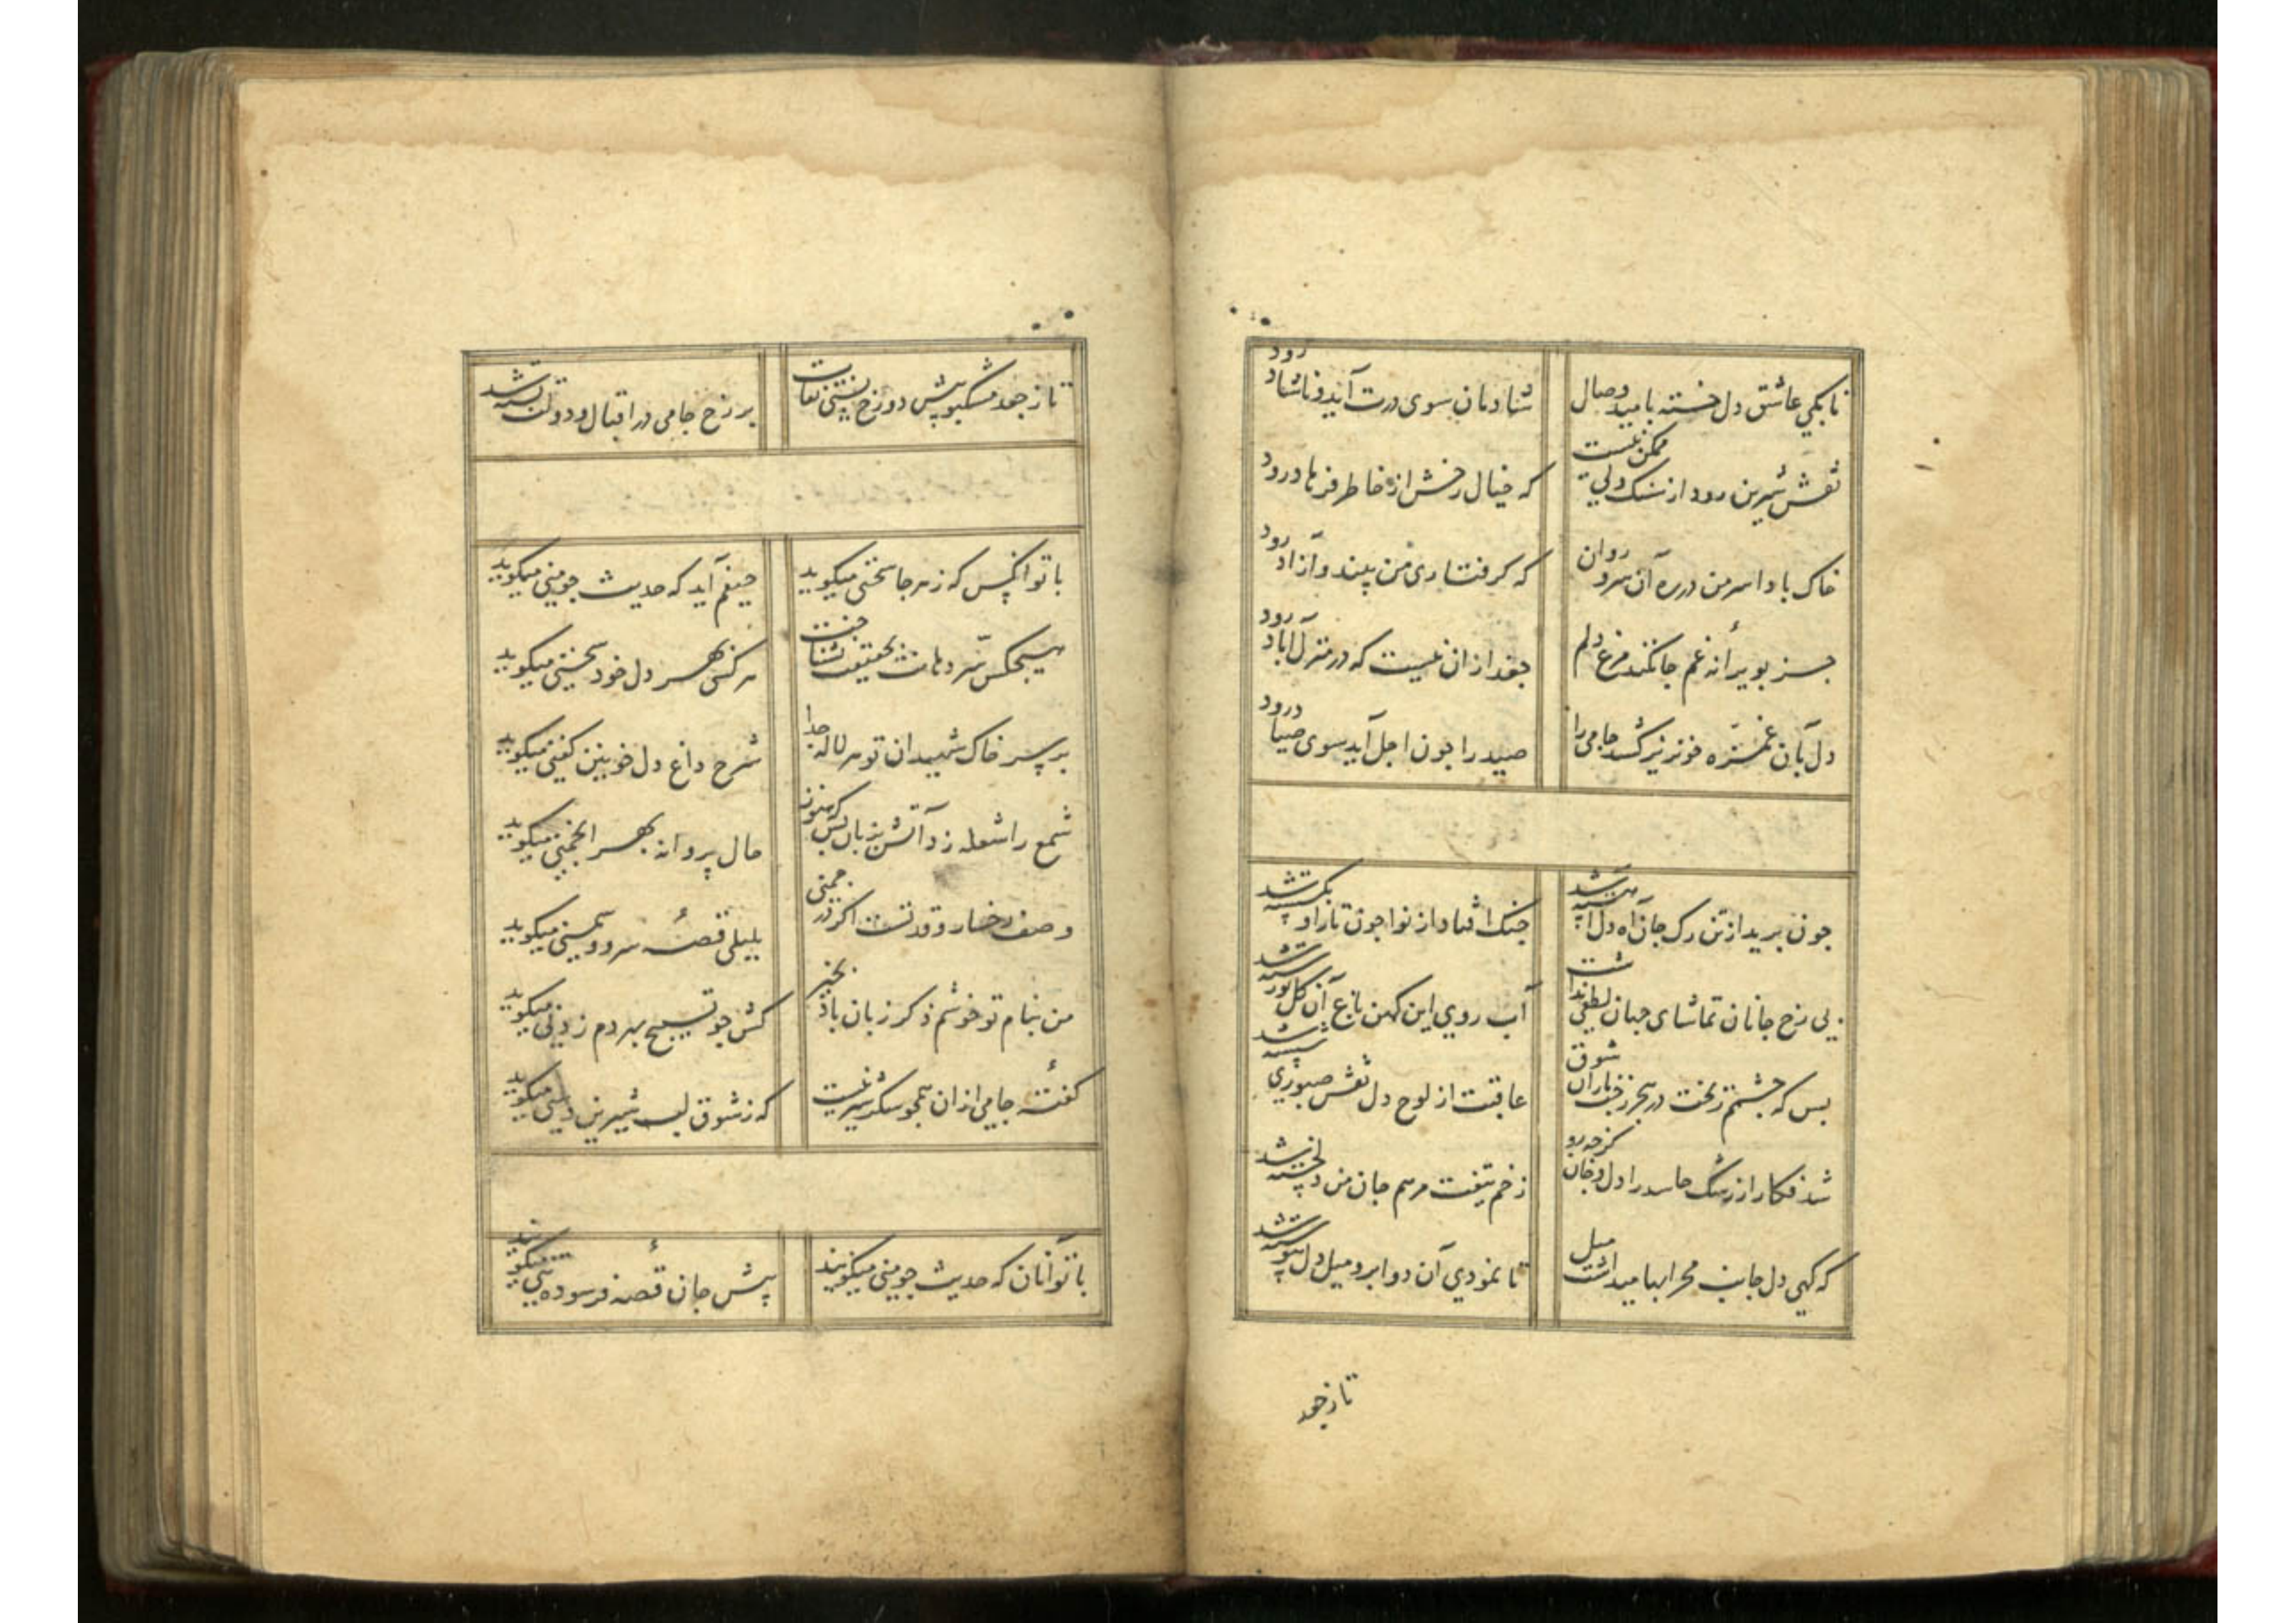 تا بکی عاشق دل خسته بامید وصال شادمان سوی درت آید و ناشاد رود
نقش شیرین رود از سنک ولی ممکن نیست که خیال رخش از خاطر فرهاد رود
خاک بادا سر من در ره آن سرو روان که کرفتاری من بیند و آزاد رود
جز بویرانه غم جا نکند مرغ دلم جغد ازان نیست که در منزل آباد رود
دل بآن غمزه خونریز کشد جامی را صید را جون اجل آید سوی صیاد رود
جون برید از تن رک جان آه دل جنک افتاد از نوا جون تار او بکسسته شد
بی رخ جانان تماشای جهان لطفی نداشت آب روی این کهن باغ آن کل
بس که جشمم ریخت در هجر رخت باران شوق عاقبت از لوح دل نقش صبوری شسته شد
شد فکار از رشک حاسد را دل و جان کرجه زو زخم تیغت مرهم جان من دلخسته شد
که کهی دل جانب محرابها میداشت میل تا نمودی آن دو ابرو میل دل پیوسته شد
تا ز جعد
تا ز جعد مشکبو پیش دو رخ بستی نقاب بر رخ جامی در اقبال و دولت بسته شد
با تو آنکس که ز هر جا سخنی میکوید حیفم آید که حدیث جو منی میکوید
هیجکس سر دهانت بحقیقت نشناخت هر کس بهر دل خود سخنی میکوید
بر سر خاک شهیدان تو هر لاله جدا شرح داغ دل خونین کفنی میکوید
شمع را شعله زد آتش بزبان بس که هنوز حال پروانه بهر انجمنی میکوید
وصف رخسار و قدتست اکر در جمنی بلبلی قصه سرو و سمنی میکوید
من بنام تو خوشم ذکر زبان باد بخیر کش جو تسبیح بهر دم زدنی میکوید
کفته جامی ازان همجو شکر شیرینست که ز شوق لب شیرین دهنی میکوید
با تو آنان که حدیث جو منی میکویند پیش جان قصه فرسوده تنی میکویند